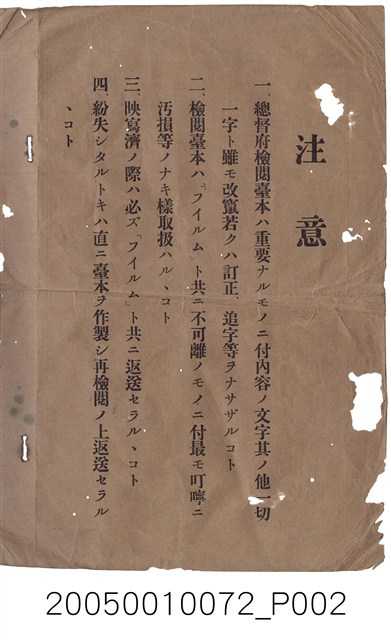 注意
一、總督府檢閱臺本ハ重要ナルモノニ付內容ノ文字其ノ他一切
一字ト雖モ改竄若クハ訂正、追字等ヲナサザルコト
二、檢閱臺本ハ「フイルム」ト共ニ不可離ノモノニ付最モ叮嚀ニ
汚損等ノナキ樣取扱ハルヽコト
三、映寫濟ノ際ハ必ズ「フイルム」ト共ニ返送セラルヽコト
四、紛失シタルトキハ直ニ臺本ヲ作製シ再檢閱ノ上返送セラル
ヽコト
20050010072_P002